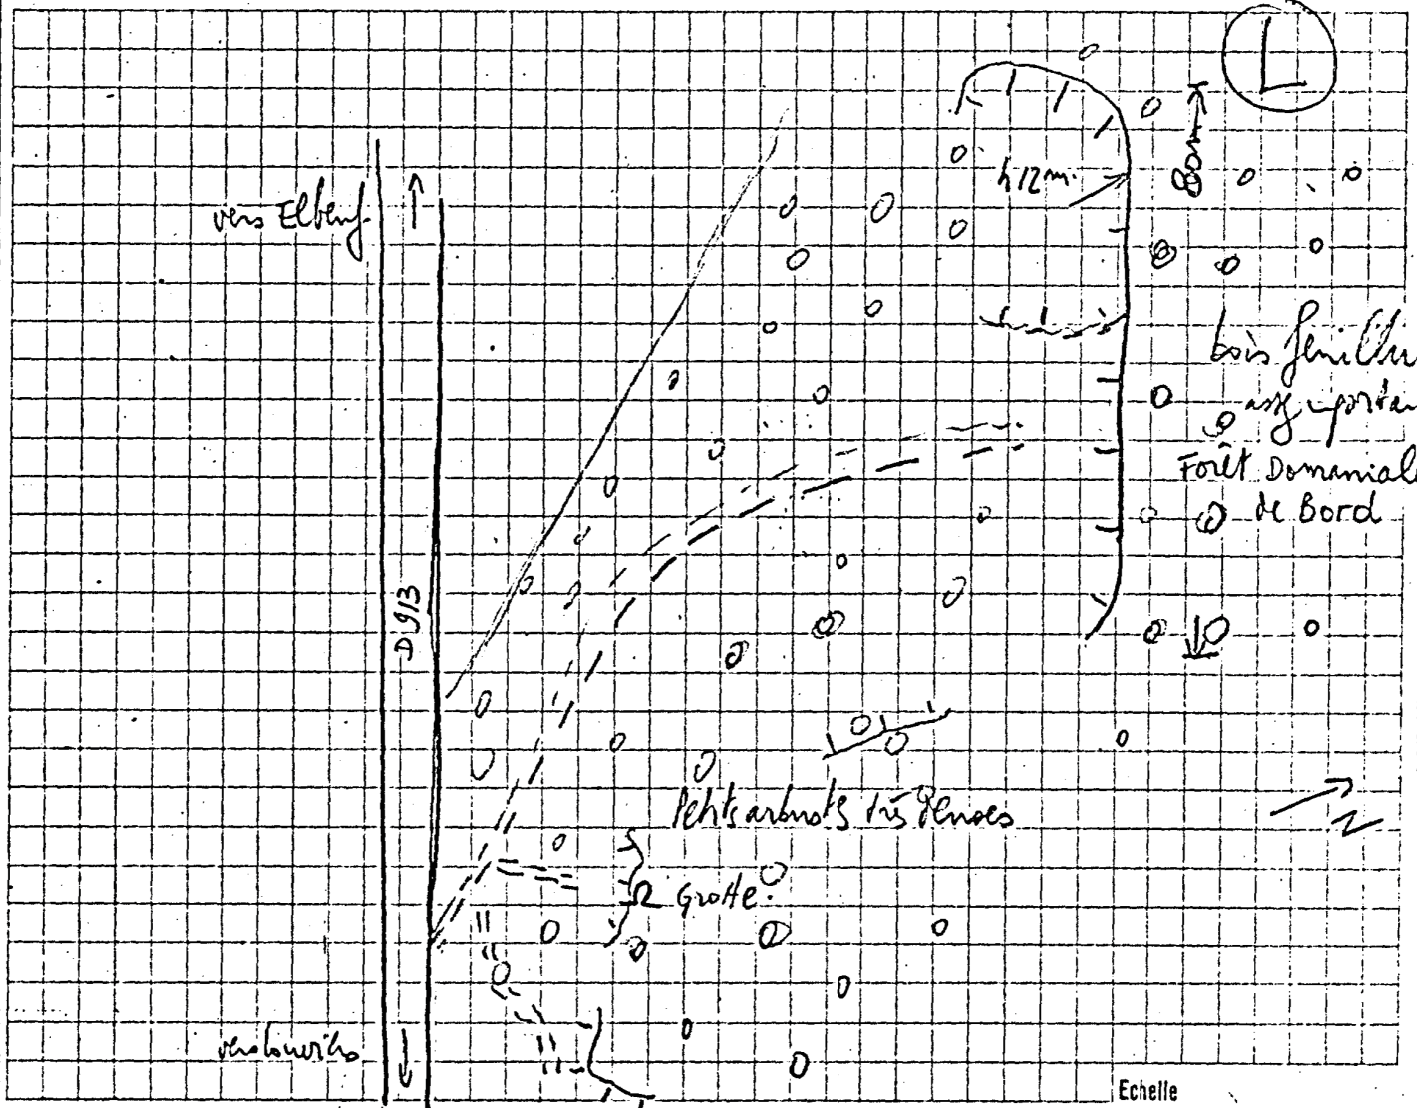 L
80m
h 12m.
vers Elbeuf
bois feuillu
assez importan
Forêt Domaniale
de Bord
D 913
Petits arbustes très denses
N
Grotte
vers Louviers
Echelle